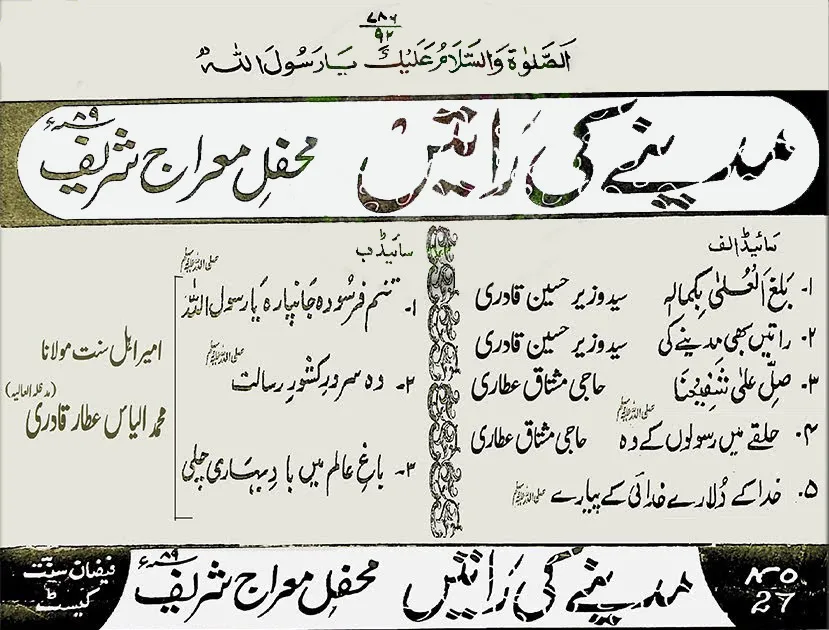 ۷۸۶
۹۲
اَلصَّلوٰۃُ وَالسَّلَامُ عَلَیْکَ یَا رَسُوْلَ اللہ
مدینے کی راتیں محفلِ معراج شریف ۸۹ء
سائیڈ الف
۱۔ بَلَغَ الْعُلیٰ بِکمالہٖ سید وزیر حسین قادری
۲۔ راتیں بھی مدینے کی سید وزیر حسین قادری
۳۔ صلِّ علیٰ شَفِیْعِنَا حاجی مشتاق عطاری
۴۔ حلقے میں رسولوں کے وہ ﷺ حاجی مشتاق عطاری
۵۔ خدا کے دُلارے خدائی کے پیارے ﷺ
سائیڈ ب
۱۔ تنم فرسودہ جاںپارہ یا رسول اللہ ﷺ
۲۔ وہ سرورِ کشورِ رسالت ﷺ
۳۔ باغِ عالم میں بادِ بہاری چلی
امیر اہل سنت مولانا
محمد الیاس عطار قادری (مدظلہ العالیہ)
مدینے کی راتیں محفلِ معراج شریف ۸۹ء
NO 27
فیضانِ سنّت
کیسٹ